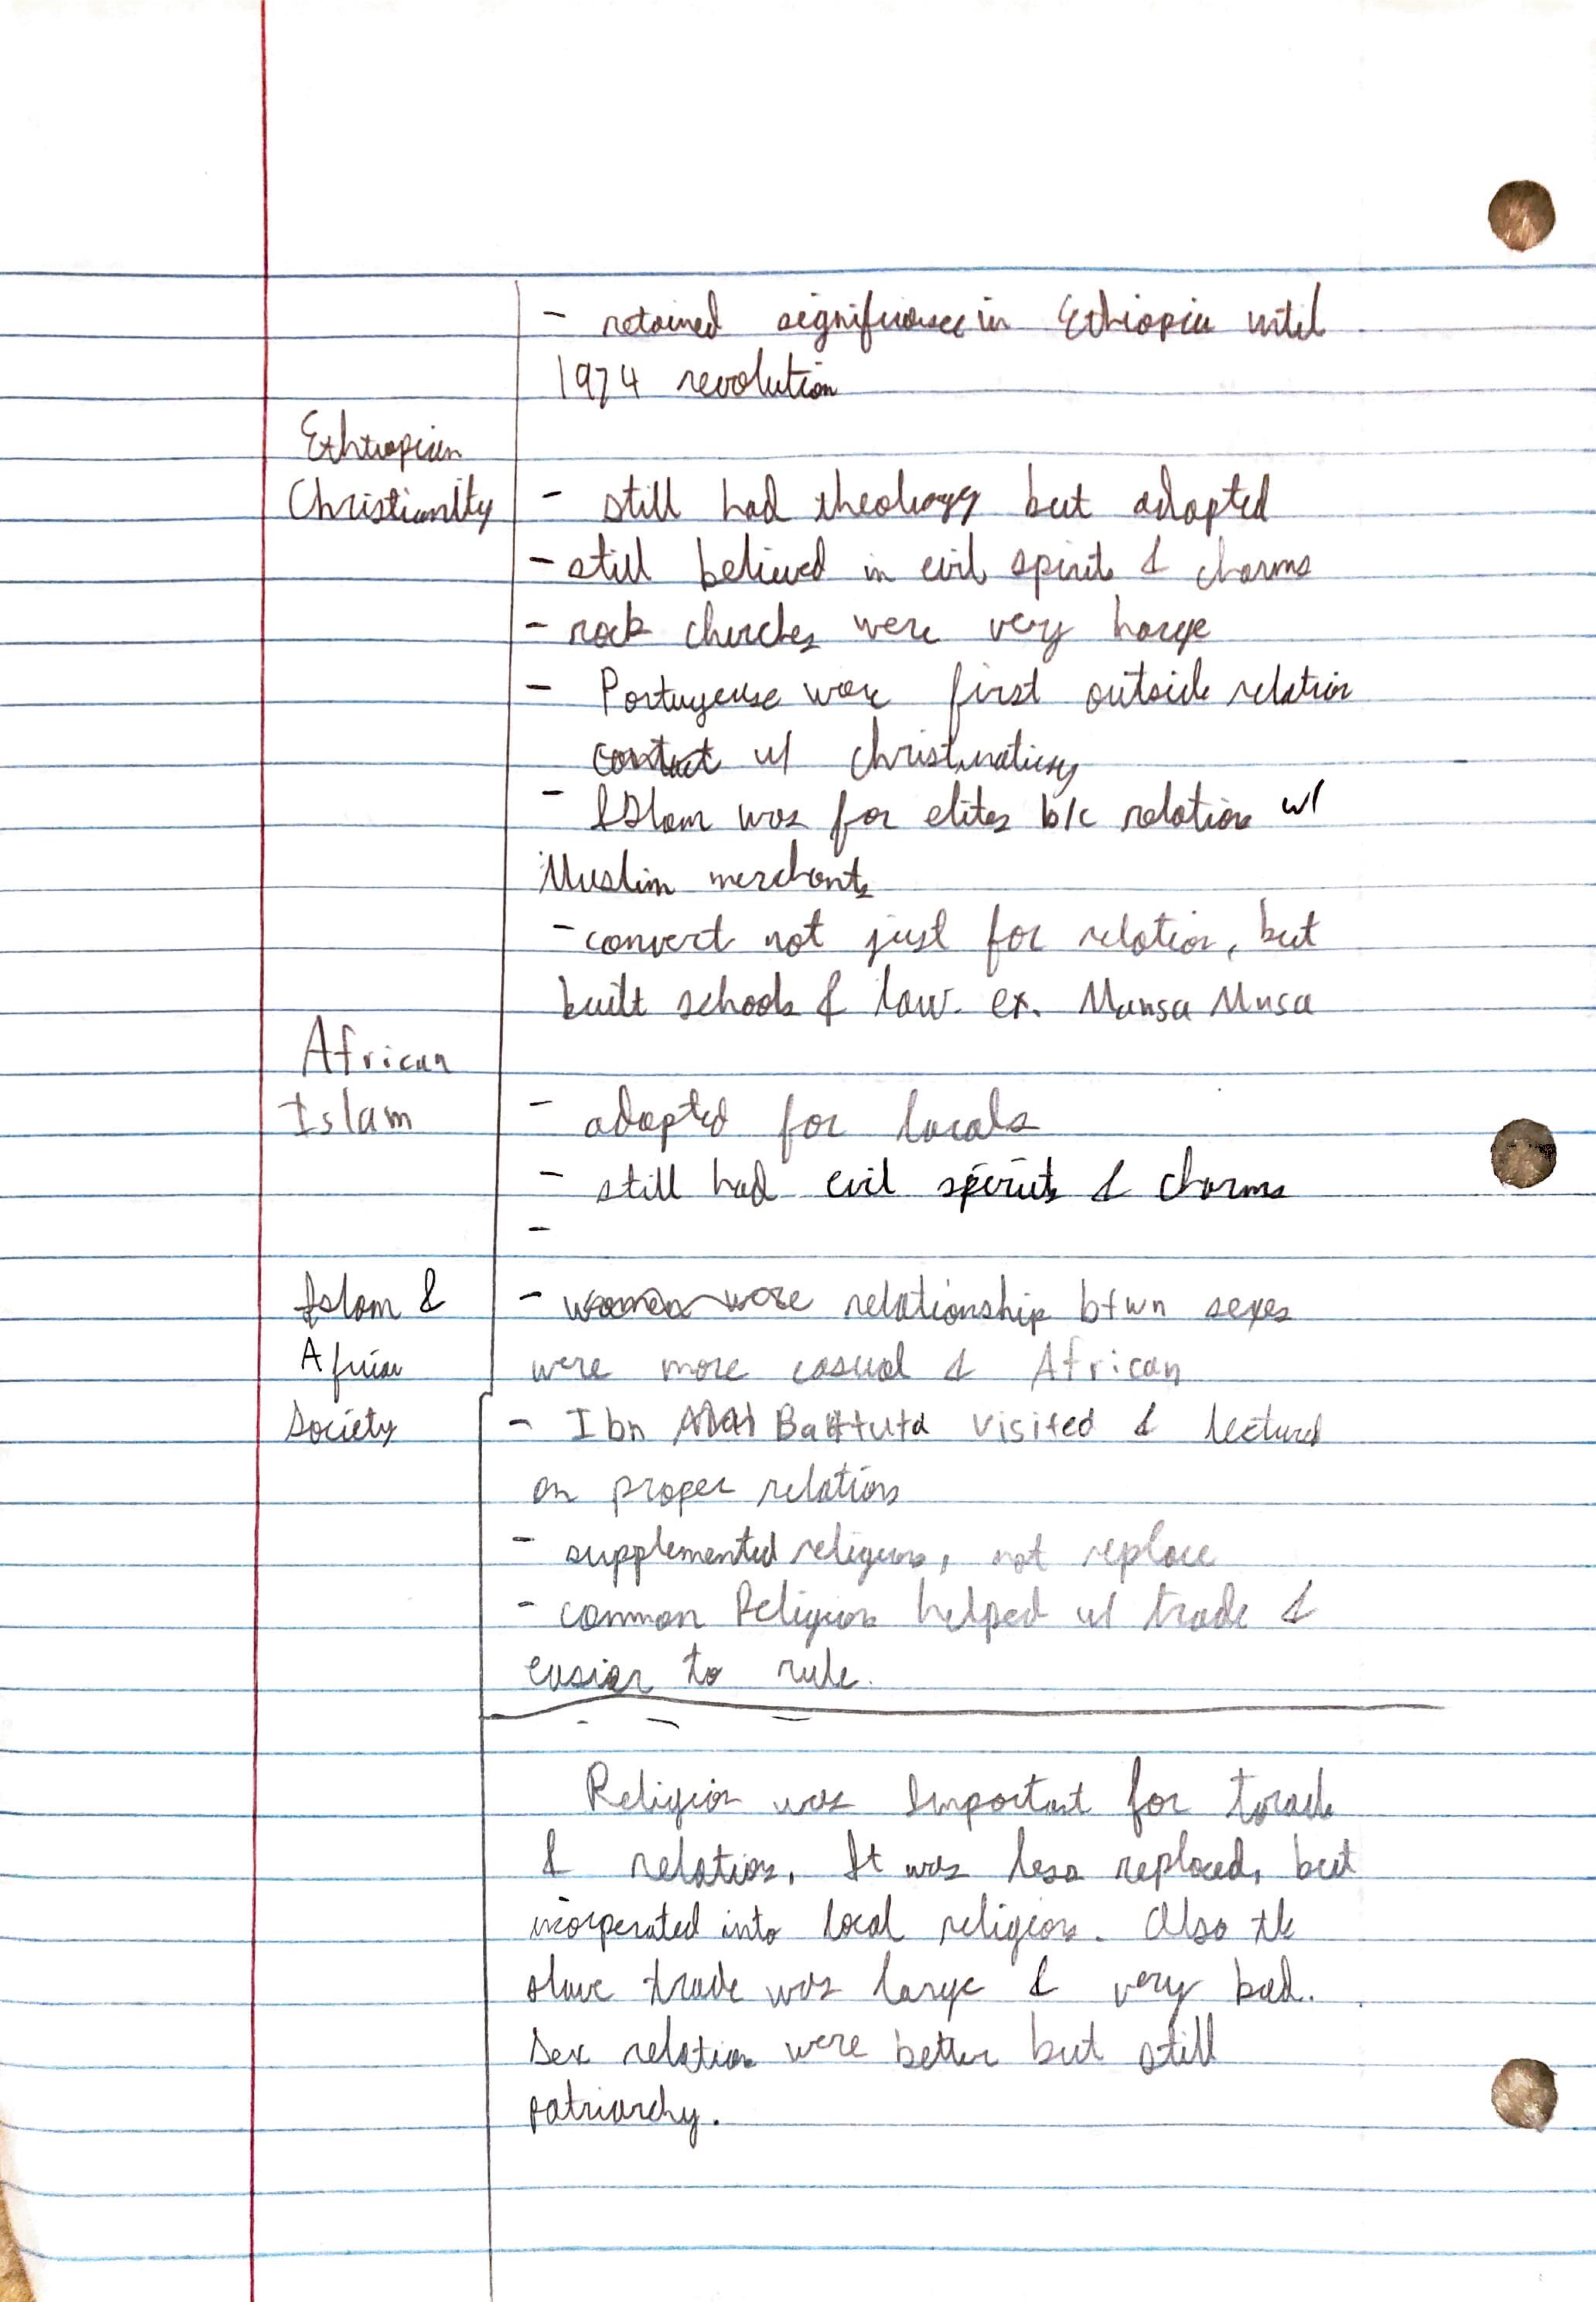 - retained significance in Ethiopia until
1974 revolution
Ethiopian
Christianity
- still had theology but adapted
- still believed in evil spirits & charms
- rock churches were very large
- Portugeuse were first outside relation
contact w/ christinatiy
- Islam was for elites b/c relation w/
Muslim merchants
- convert not just for relation, but
built schools & law. ex. Mansa Musa
African
Islam
- adapted for locals
- still had evil spirits & charms
-
Islam &
African
Society
- women were relationship btwn sexes
were more casual & African
- Ibn Battuta visited & lectured
on proper relations
- supplemented religions, not replace
- common Religion helped w/ trade &
easier to rule.
Religion was Important for trade
& relation. It was less replaced, but
incorperated into local religions. Also the
slave trade was large & very bad.
Sex relation were better but still
patriarchy.